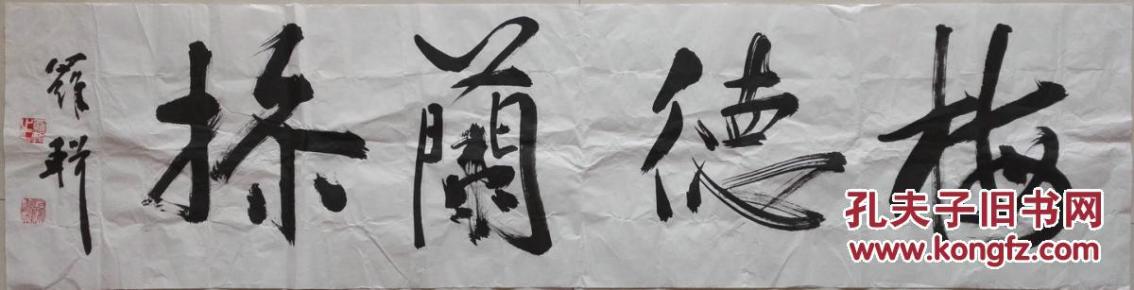 梅德蘭操
羅祥
孔夫子旧书网
www.kongfz.com